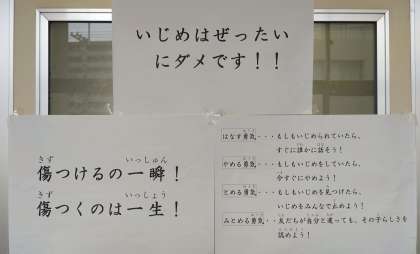 いじめはぜったい
にダメです！！
傷つけるの一瞬！
傷つくのは一生！
はなす勇気・・・もしもいじめられていたら、
すぐに誰かに話そう！
やめる勇気・・・もしもいじめをしていたら、
今すぐにやめよう！
とめる勇気・・・もしもいじめを見つけたら、
いじめをみんなで止めよう！
みとめる勇気・・・友だちが自分と違っても、その子らしさを
認めよう！